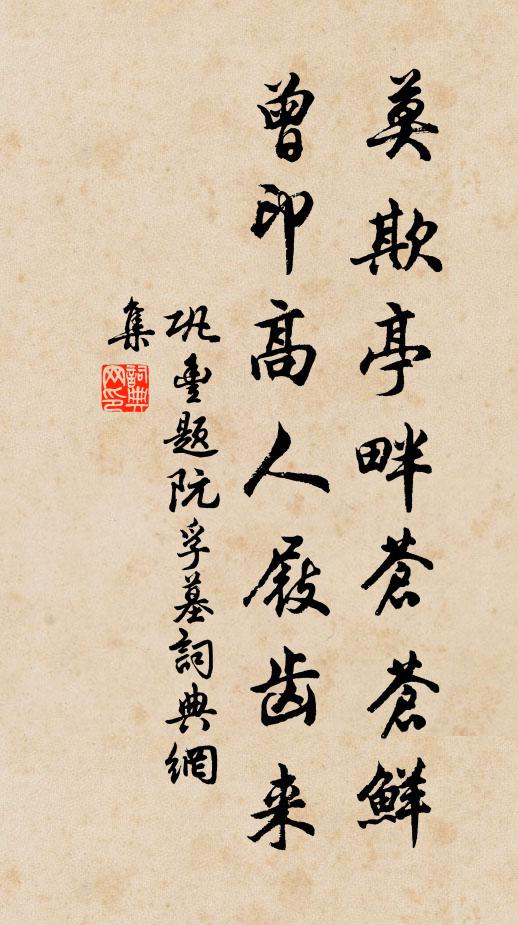 莫欺亭畔苍苍鲜
曾印高人屐齿来
巩丰题阮孚墓词典网
集
词典网印